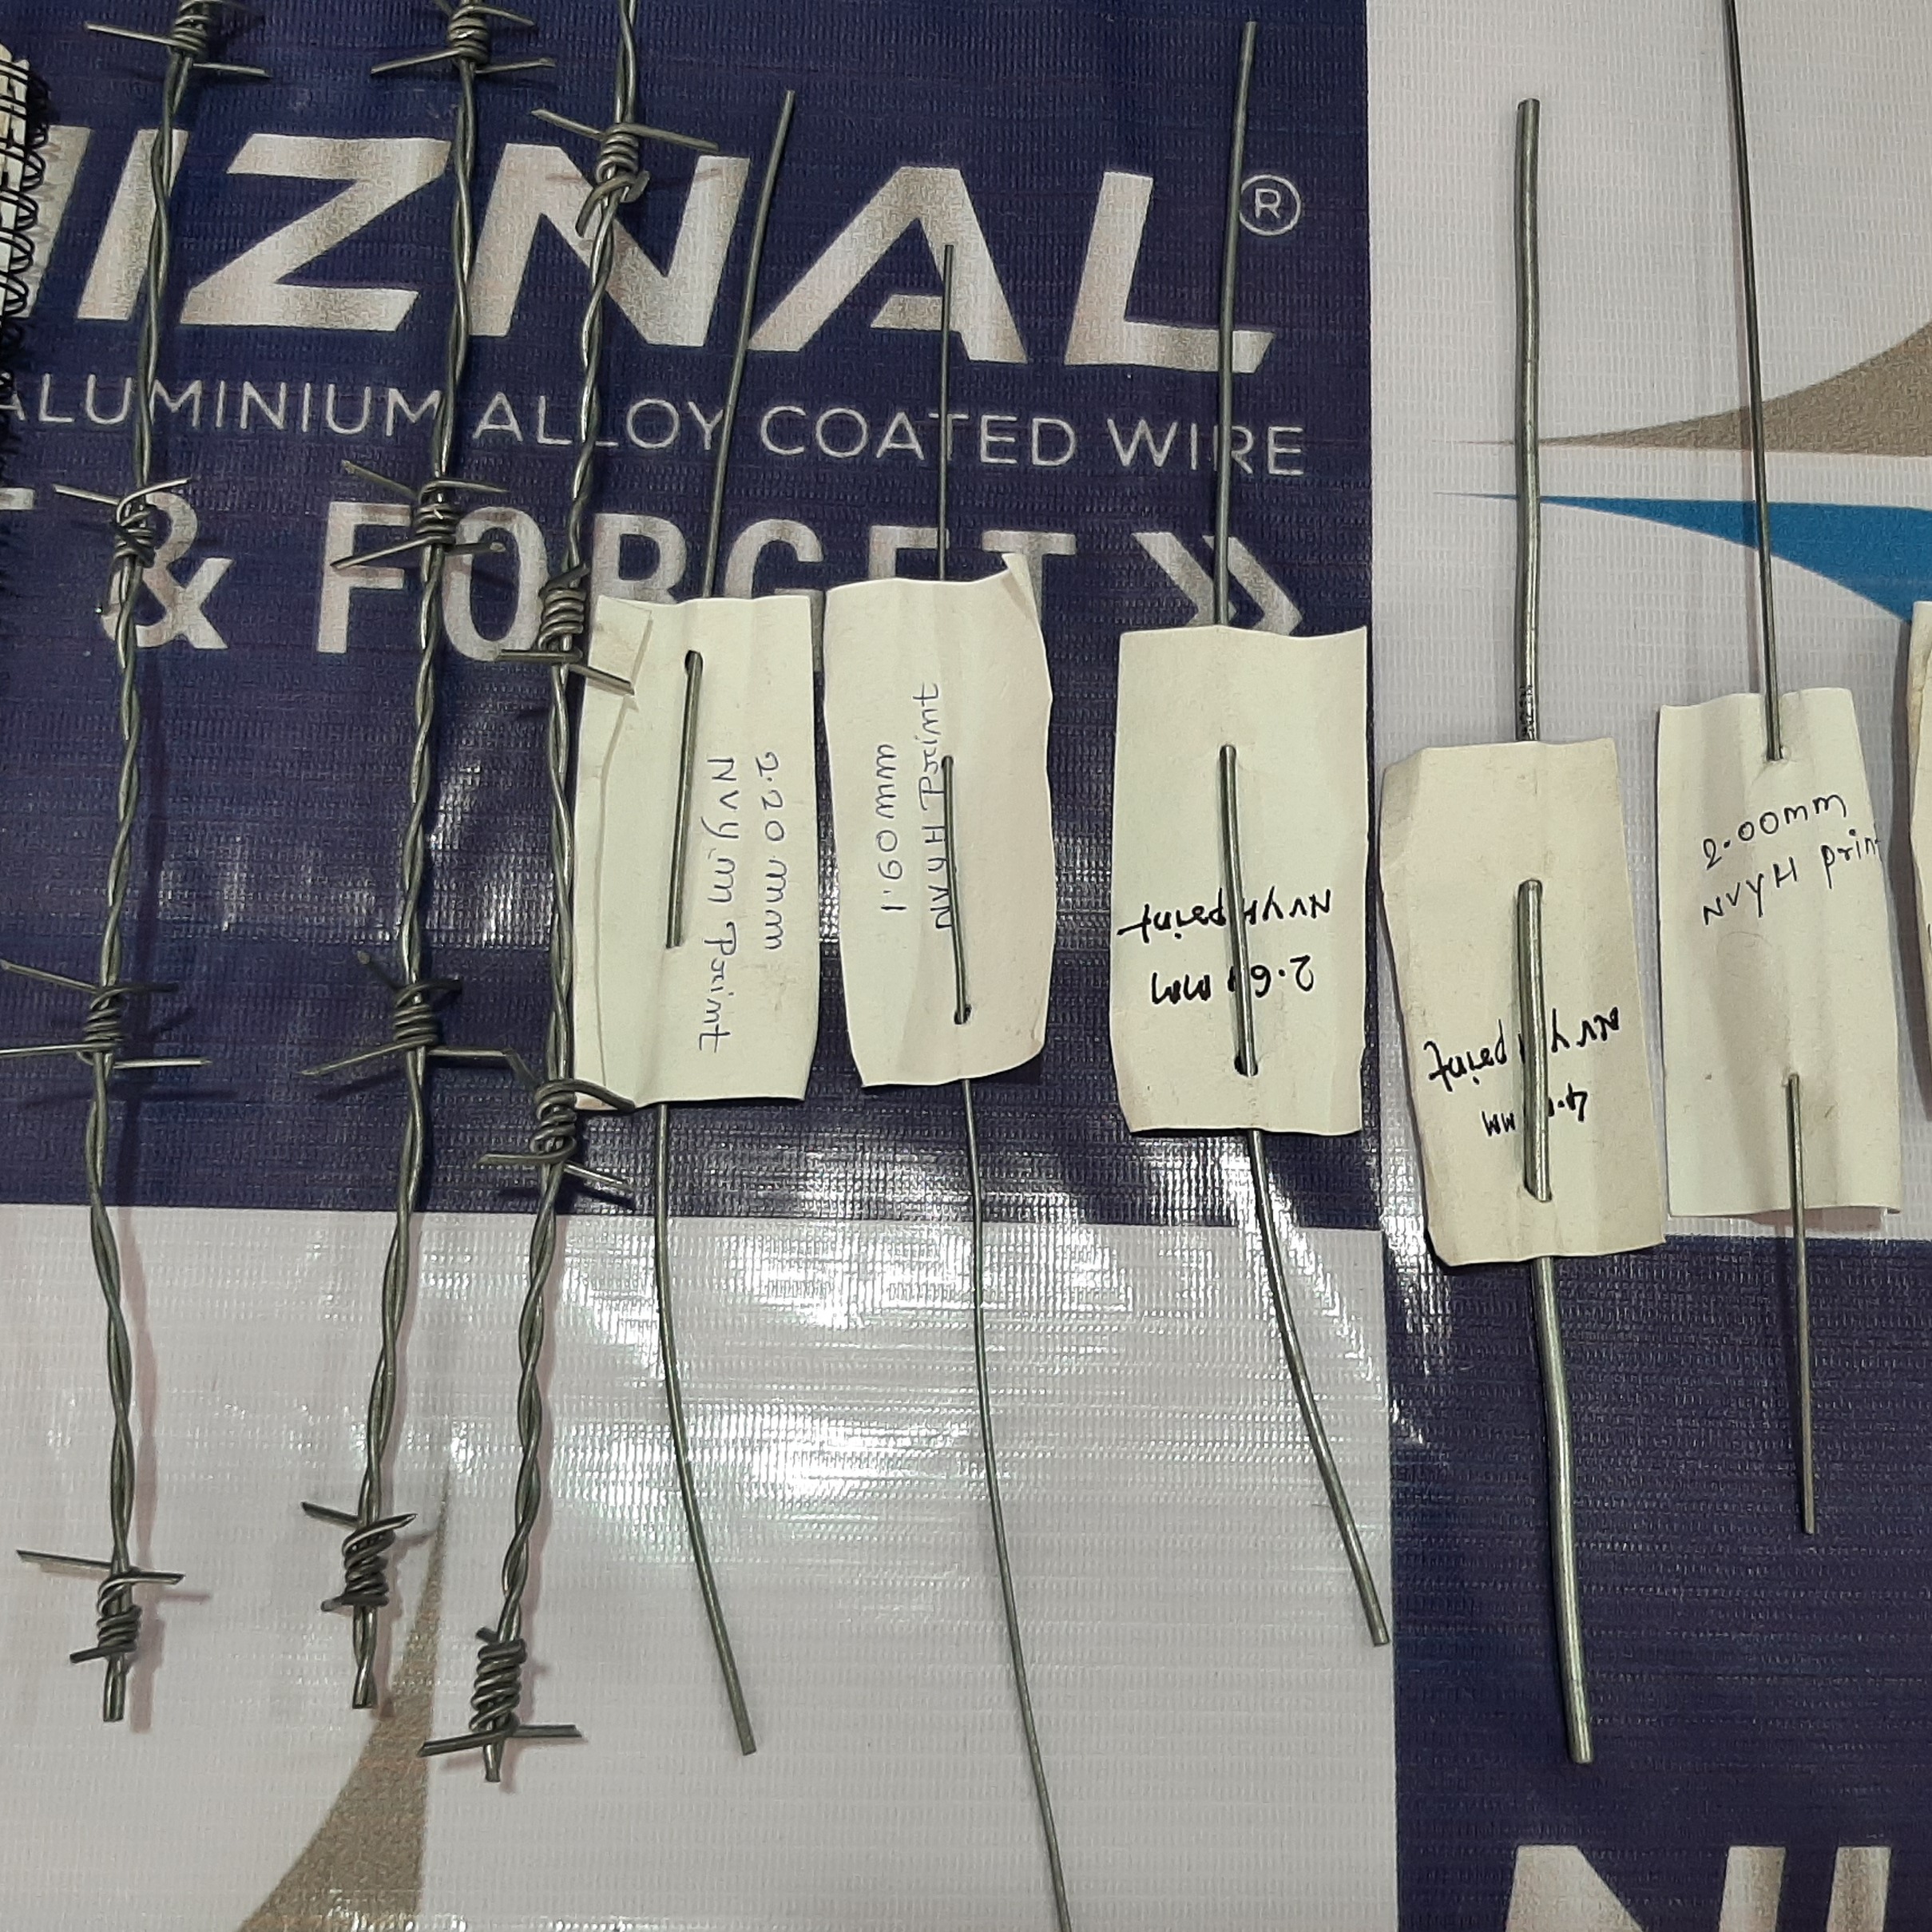 IZNAL®
ALUMINIUM ALLOY COATED WIRE
& FORGET »
2.20mm
NVYM Print
1.90mm
NVYH Print
NVYH print
mm
print
mm
2.00mm
NVYH prin